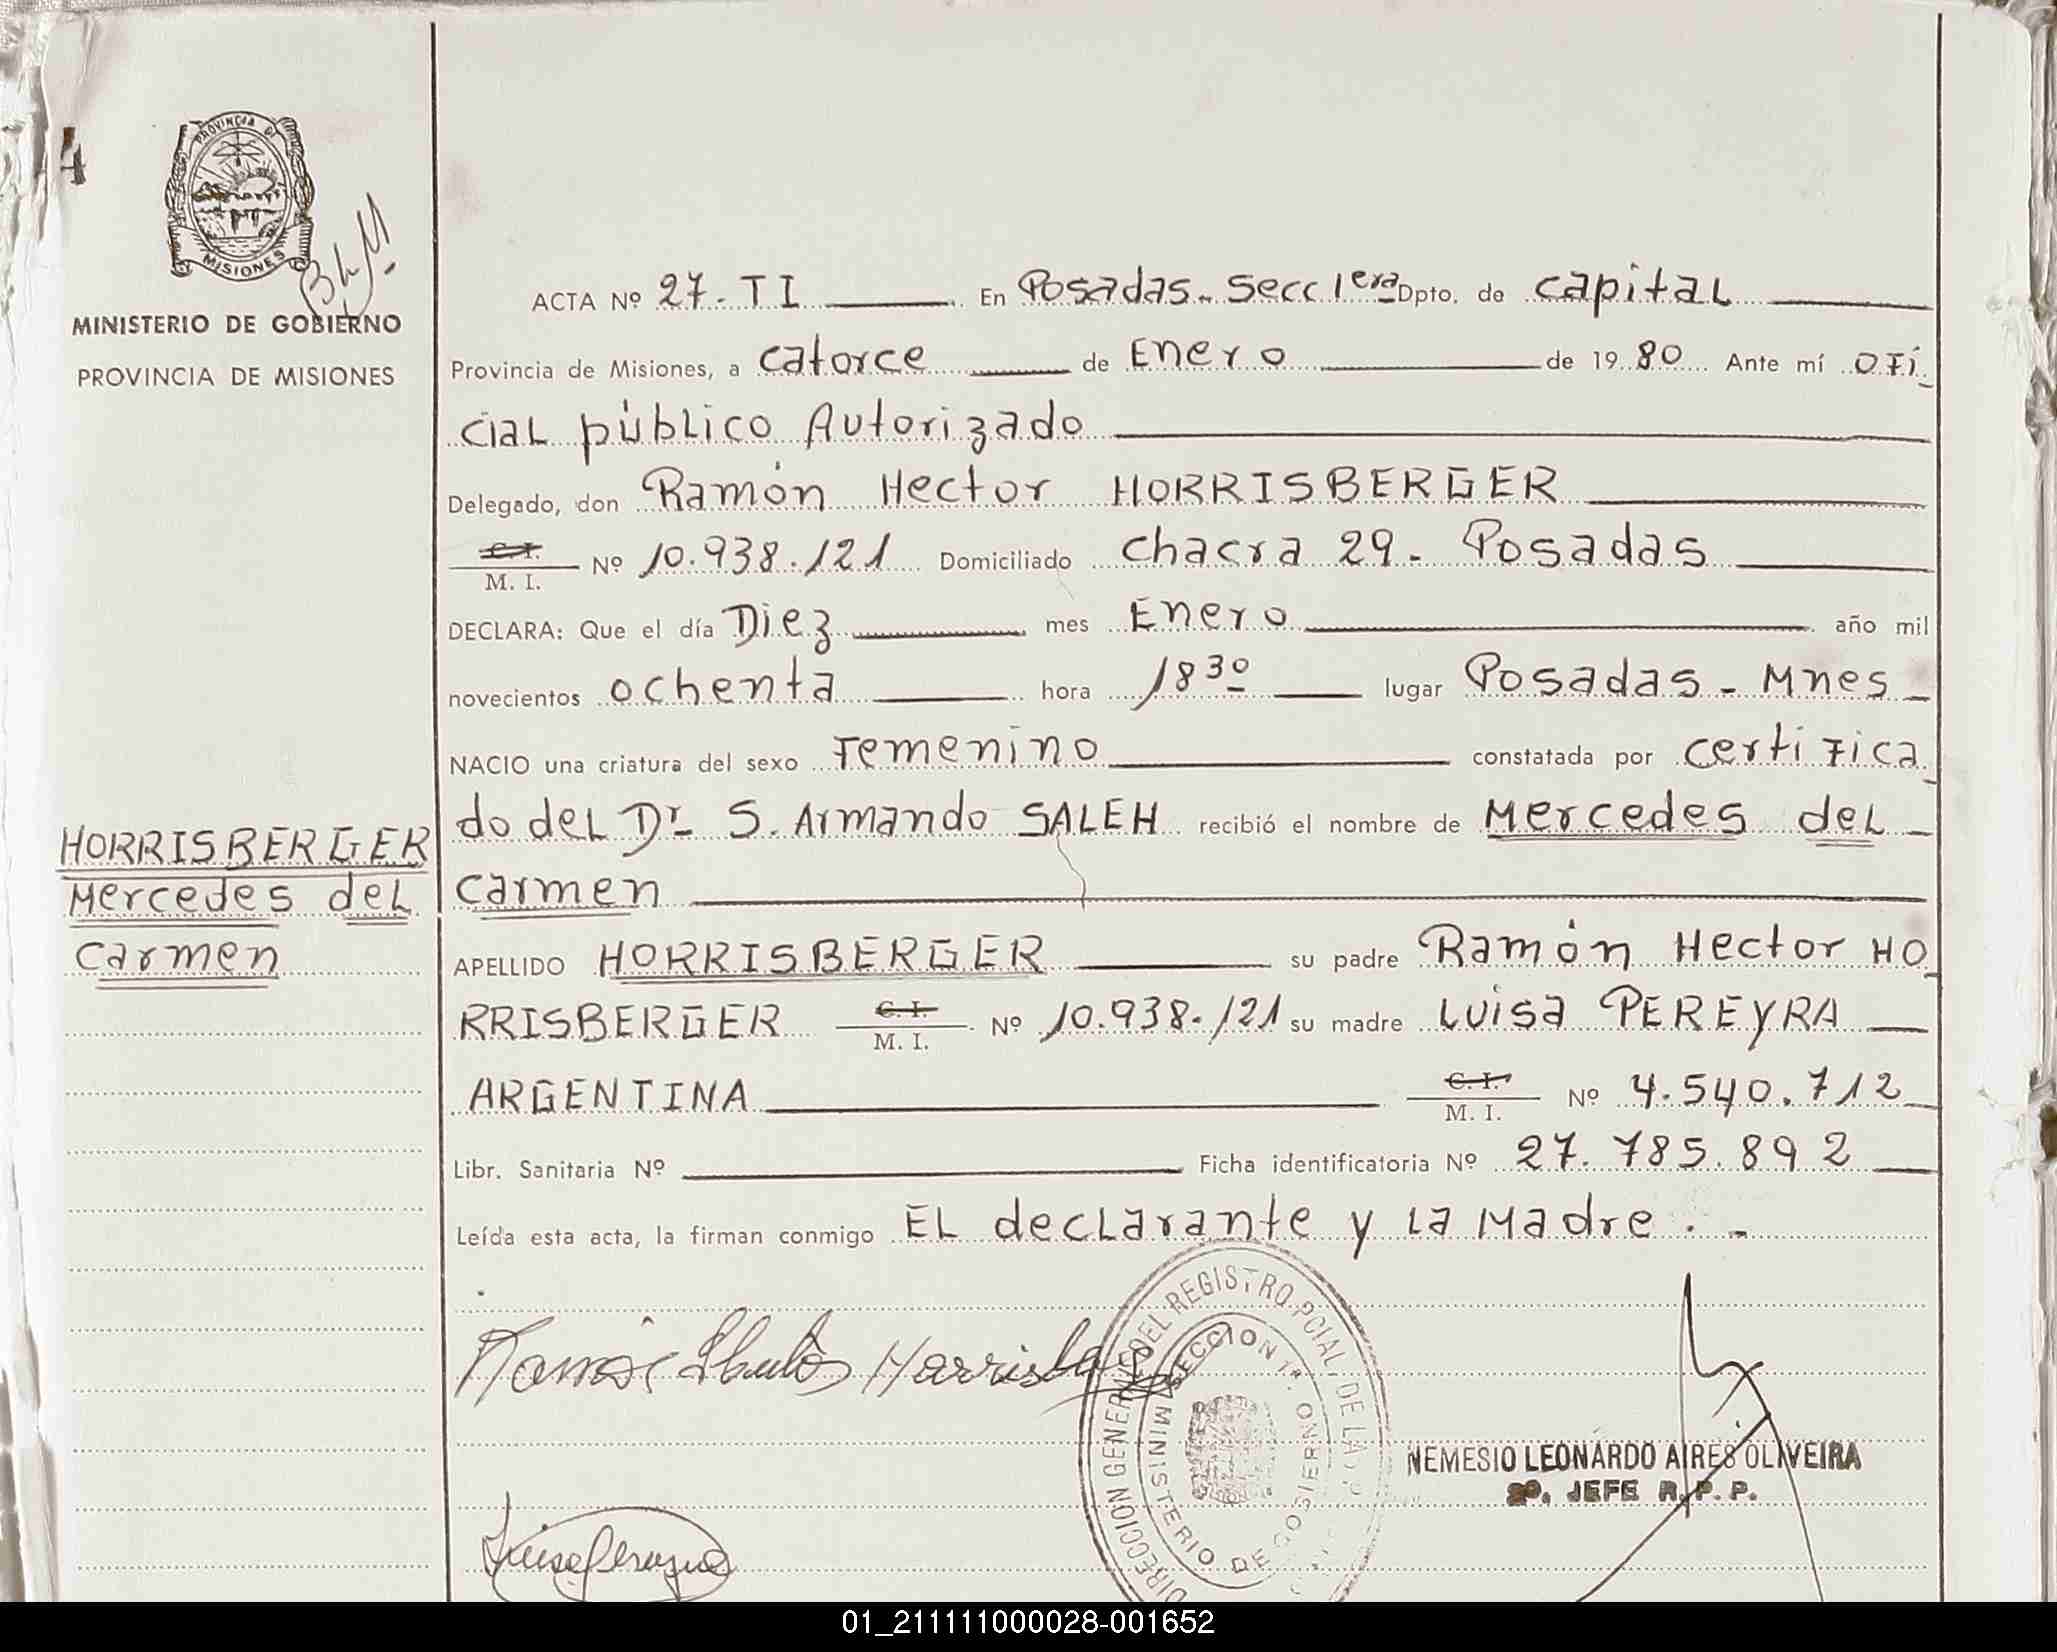 PROVINCIA DE
MISIONES
MINISTERIO DE GOBIERNO
PROVINCIA DE MISIONES
HORRISBERGER
Mercedes del
Carmen
ACTA Nº 27. TI En Posadas. Secc 1era Dpto. de capital
Provincia de Misiones, a catorce de Enero de 1980 Ante mí Ofi
cial público Autorizado
Delegado, don Ramón Hector HORRISBERGER
C. I.
M. I. Nº 10.938.121 Domiciliado chacra 29. Posadas
DECLARA: Que el día Diez mes Enero año mil
novecientos ochenta hora 18³⁰ lugar Posadas - Mnes
NACIO una criatura del sexo Femenino constatada por certifica
do del Dr S. Armando SALEH recibió el nombre de Mercedes del
Carmen
APELLIDO HORRISBERGER su padre Ramón Hector HO
RRISBERGER C. I. M. I. Nº 10.938.121 su madre Luisa PEREYRA
ARGENTINA C. I. M. I. Nº 4.540.712
Libr. Sanitaria Nº Ficha identificatoria Nº 27.785.892
Leída esta acta, la firman conmigo EL declarante y la Madre . -
DIRECCION GENERAL DEL REGISTRO PCIAL DE LA
SECCION 1ª.
MINISTERIO DE GOBIERNO
NEMESIO LEONARDO AIRES OLIVEIRA
2º. JEFE R. P. P.
Luisa Pereyra
01_211111000028-001652